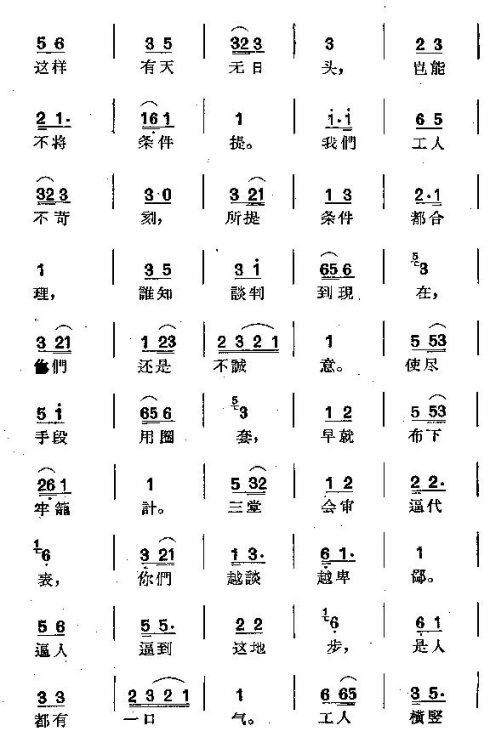 5 6 | 3 5 | 32 3 | 3 | 2 3
这样 有天 无日 头， 岂能
2 1· | 16 1 | 1 | i·i | 6 5
不将 条件 提。 我們 工人
32 3 | 3·0 | 3 21 | 1 3 | 2·1
不苛 刻， 所提 条件 都合
1 | 3 5 | 3 i | 65 6 | 5 3
理， 誰知 談判 到現 在，
3 21 | 1 23 | 2 3 2 1 | 1 | 5 53
你們 还是 不誠 意。 使尽
5 i | 65 6 | 5 3 | 1 2 | 5 53
手段 用圈 套， 早就 布下
26 1 | 1 | 5 32 | 1 2 | 2 2·
牢籠 計。 三堂 会审 逼代
1 6 | 3 21 | 1 3· | 6 1· | 1
表， 你們 越談 越卑 鄙。
5 6 | 5 5· | 2 2 | 1 6 | 6 1
逼人 逼到 这地 步， 是人
3 3 | 2 3 2 1 | 1 | 6 65 | 3 5·
都有 一口 气。 工人 橫竪